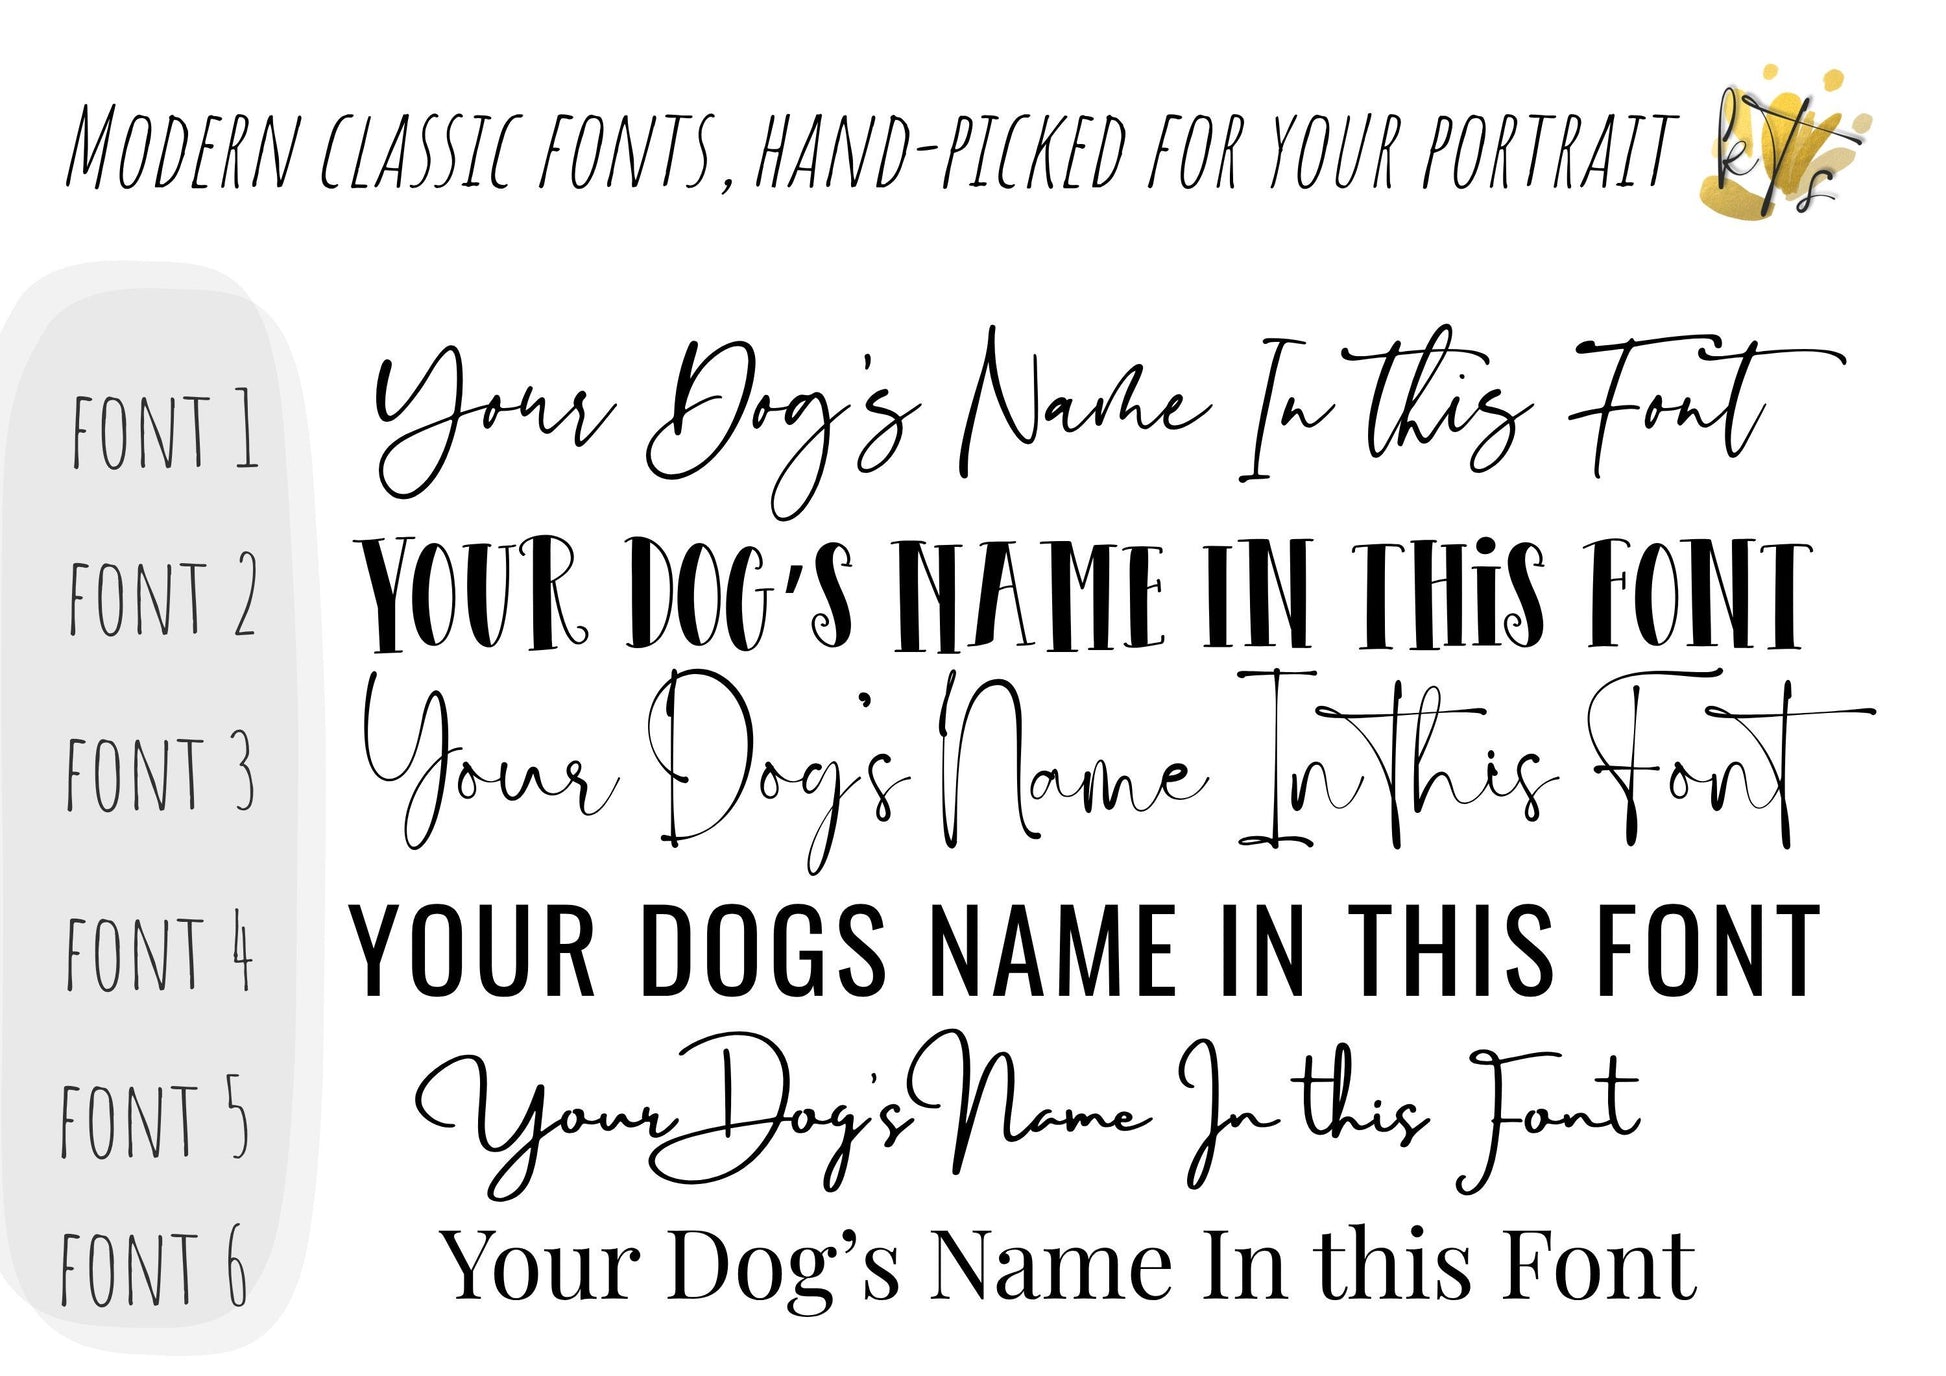 MODERN CLASSIC FONTS, HAND-PICKED FOR YOUR PORTRAIT
kTs
FONT 1 Your Dog's Name In this Font
FONT 2 YOUR DOG'S NAME IN THiS FONT
FONT 3 Your Dog's Name In this Font
FONT 4 YOUR DOGS NAME IN THIS FONT
FONT 5 Your Dog's Name In this Font
FONT 6 Your Dog’s Name In this Font